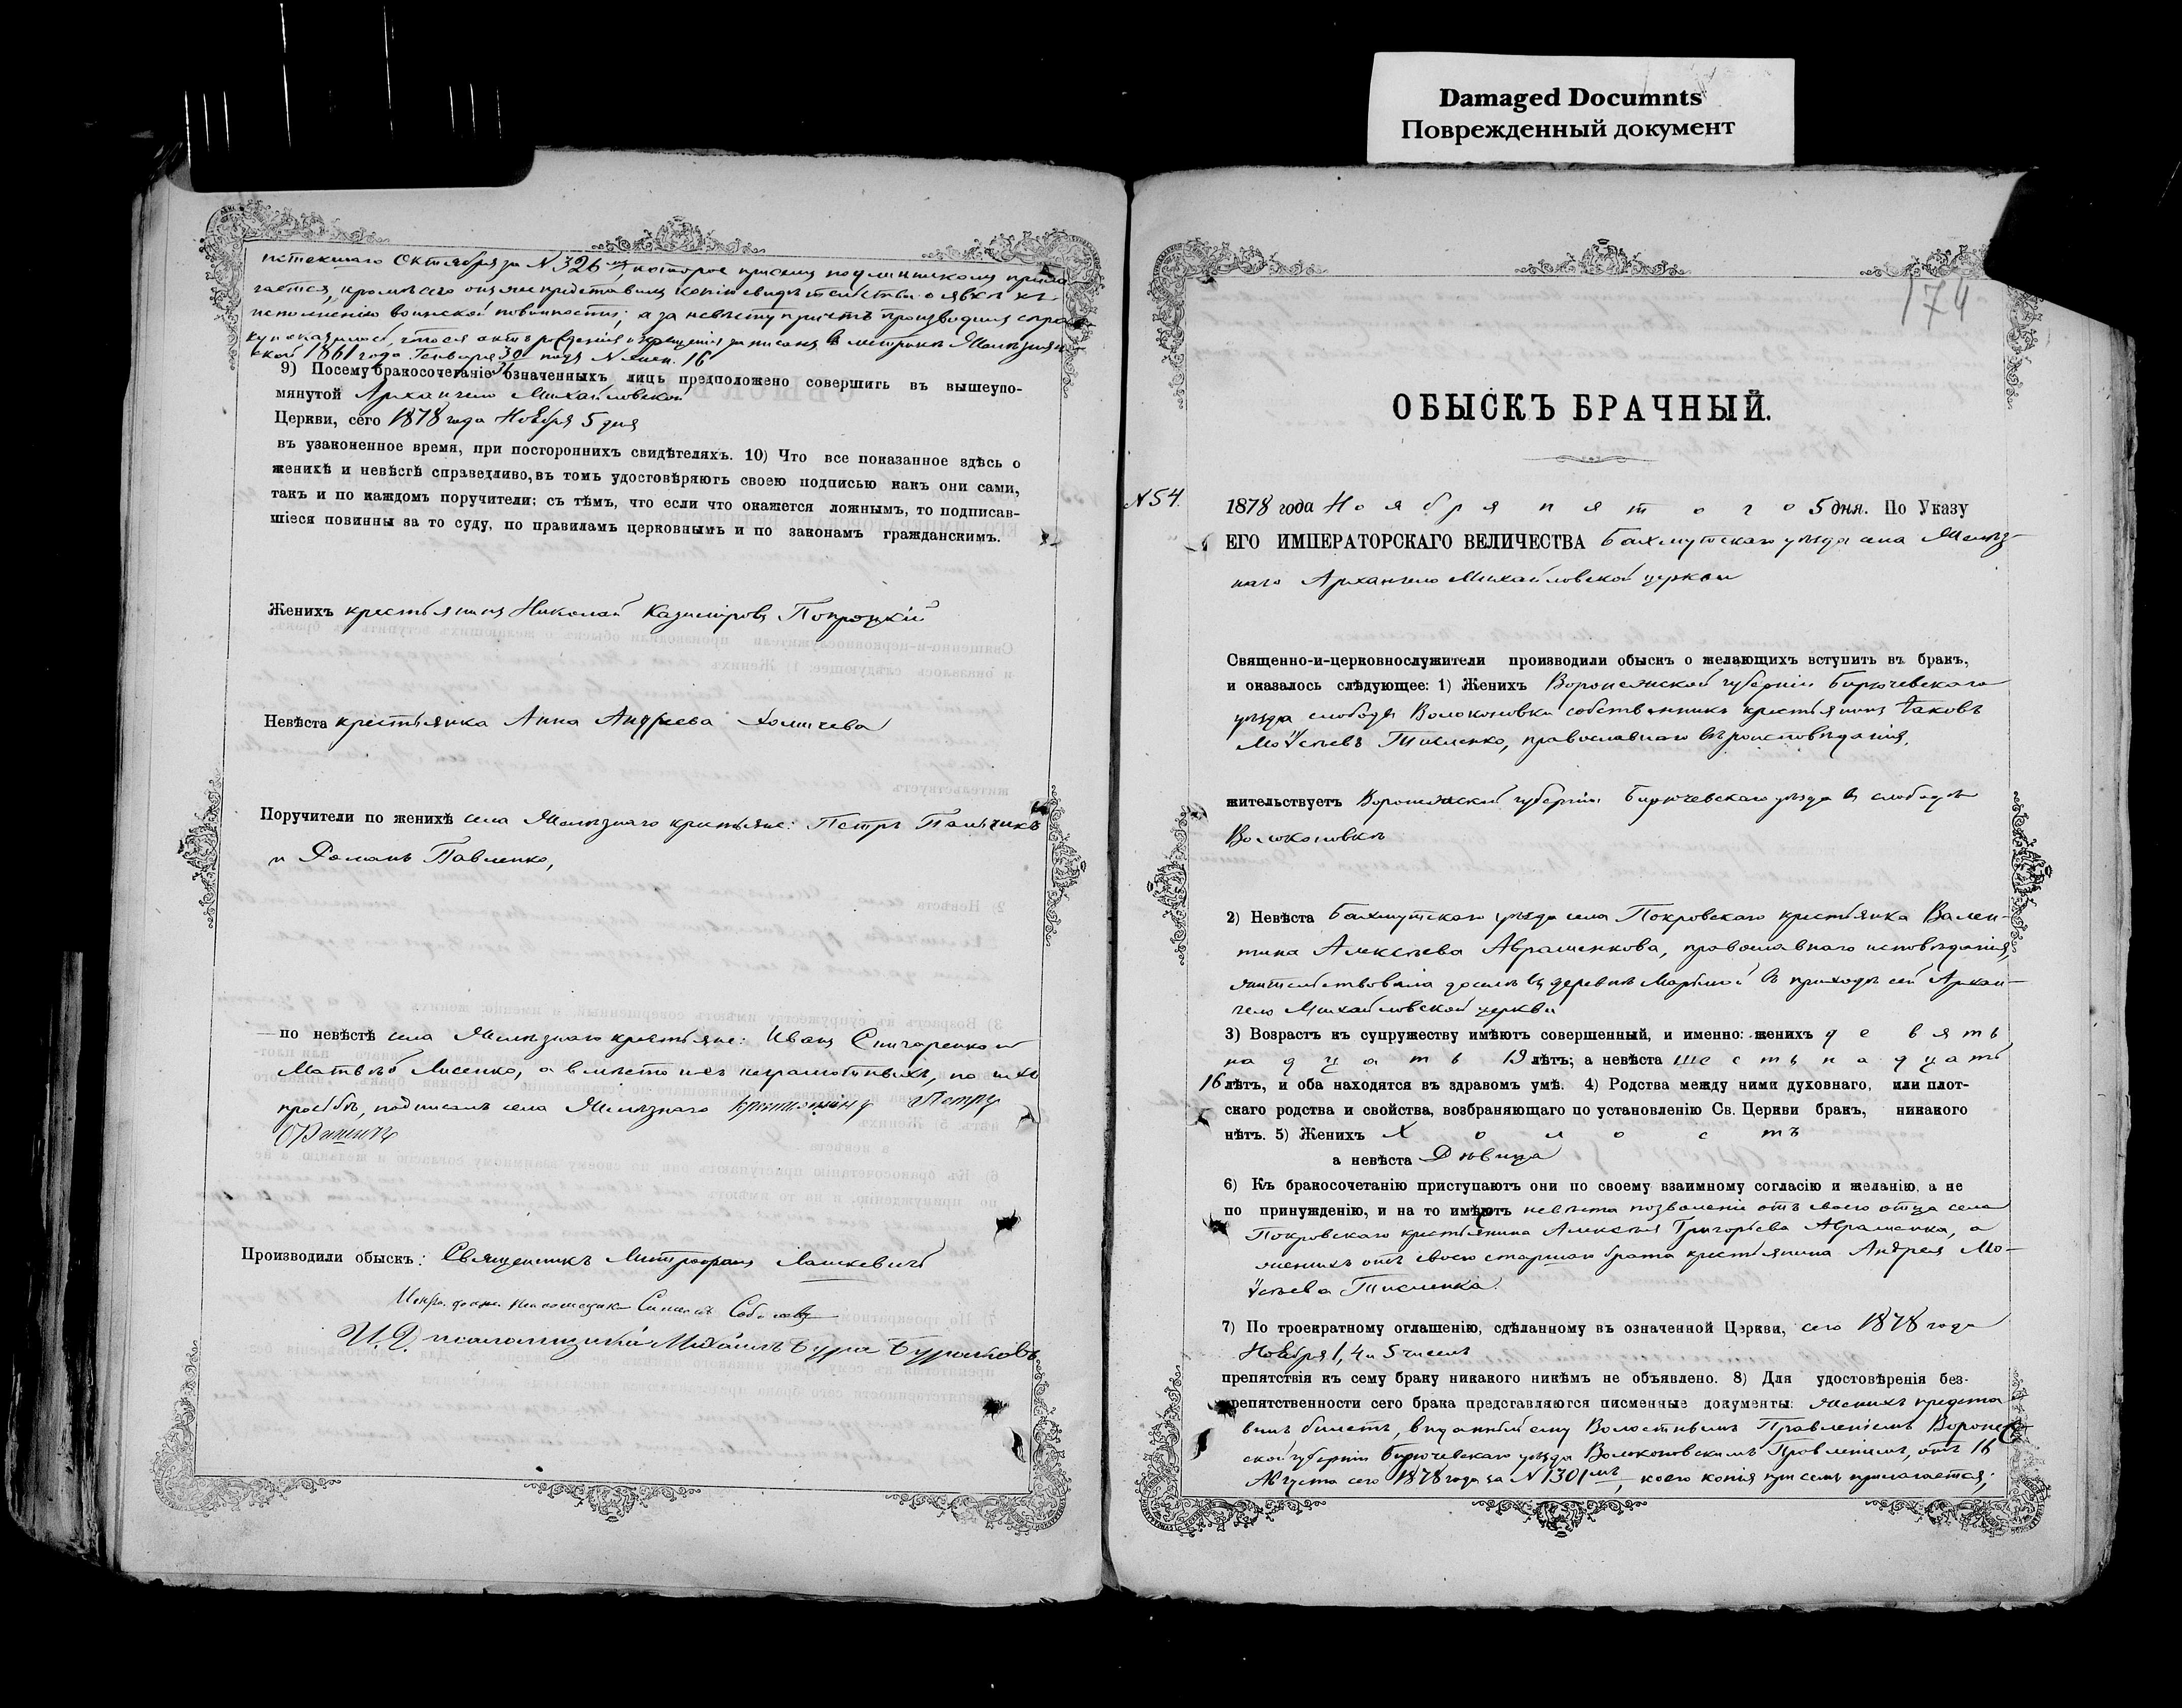 Damaged Documnts
Поврежденный документ
истекшаго Октября за N 326 мъ, которое при семъ подлинникомъ прила-
гается, кромѣ сего онъ же представилъ копію свидѣтельства о явкѣ къ
исполненію воинской повинности; а за невѣсту причтъ производилъ справ-
ку и оказалось, что ея актъ рожденія и крещенія записанъ въ метрикѣ Желѣзнян-
ской 1861 года Генваря 30 подъ N жен. 16
9) Посему бракосочетаніе означенныхъ лицъ предположено совершить въ вышеупо-
мянутой Архангело Михайловской
Церкви, сего 1878 года Ноября 5 дня
въ узаконенное время, при постороннихъ свидѣтеляхъ. 10) Что все показанное здѣсь о
женихѣ и невѣстѣ справедливо, въ томъ удостовѣряютъ своею подписью какъ они сами,
такъ и по каждомъ поручители; съ тѣмъ, что если что окажется ложнымъ, то подписав-
шіеся повинны за то суду, по правиламъ церковнымъ и по законамъ гражданскимъ.
Женихъ крестьянинъ Николай Казиміровъ Попроцкій
Невѣста крестьянка Анна Андреева
Поручители по женихѣ села Желѣзнаго крестьяне: Петръ Пальчикъ
и Романъ Павленко,
по невѣстѣ села Желѣзнаго крестьяне: Иванъ и
Матвѣй Лисенко, а вмѣсто ихъ неграмотныхъ, по ихъ
просьбѣ, подписалъ села Желѣзнаго Петръ
Производили обыскъ: Священникъ Митрофанъ Лашкевичъ
псаломщика
И. Д. псаломщика Михаилъ
174
ОБЫСКЪ БРАЧНЫЙ.
N 54.
1878 года Ноября пятого 5 дня. По Указу
ЕГО ИМПЕРАТОРСКАГО ВЕЛИЧЕСТВА Бахмутскаго уѣзда села Желѣз-
наго Архангело Михайловской церкви
Священно-и-церковнослужители производили обыскъ о желающихъ вступить въ бракъ,
и оказалось слѣдующее: 1) Женихъ Воронежской губерніи Бирюченскаго
уѣзда слободы Волоконовки собственникъ крестьянинъ Іаковъ
Моѵсеевъ Тисленко, православнаго вѣроисповѣданія,
жительствуетъ Воронежской губерніи Бирюченскаго уѣзда въ слободѣ
Волоконовкѣ
2) Невѣста Бахмутскаго уѣзда села Покровскаго крестьянка Вален-
тина Алексѣева Авраменкова, православнаго исповѣданія,
жительствовала доселѣ въ деревнѣ Марьиной въ приходѣ сей Архан-
гело Михайловской церкви
3) Возрастъ къ супружеству имѣютъ совершенный, и именно: женихъ девять
надцать 19 лѣтъ; а невѣста шестьнадцать
16 лѣтъ, и оба находятся въ здравомъ умѣ. 4) Родства между ними духовнаго, или плот-
скаго родства и свойства, возбраняющаго по установленію Св. Церкви бракъ, никакого
нѣтъ. 5) Женихъ Холостъ
а невѣста Дѣвица
6) Къ бракосочетанію приступаютъ они по своему взаимному согласію и желанію, а не
по принужденію, и на то имѣютъ невѣста позволеніе отъ своего отца села
Покровскаго крестьянина Алексѣя Григорьева Авраменка, а
женихъ отъ своего старшаго брата крестьянина Андрея Мо-
ѵсеева Тисленка.
7) По троекратному оглашенію, сдѣланному въ означенной Церкви, сего 1878 года
Ноября 1, 4 и 5 чиселъ
препятствія къ сему браку никакого никѣмъ не объявлено. 8) Для удостовѣренія без-
препятственности сего брака представляются писменные документы: женихъ предста
вилъ билетъ, выданный ему Волостнымъ Правленіемъ Воронеж-
ской губерніи Бирюченскаго уѣзда Волоконовскимъ Правленіемъ, отъ 16
Августа сего 1878 года за N 1301 мъ, коего копія при семъ прилагается;